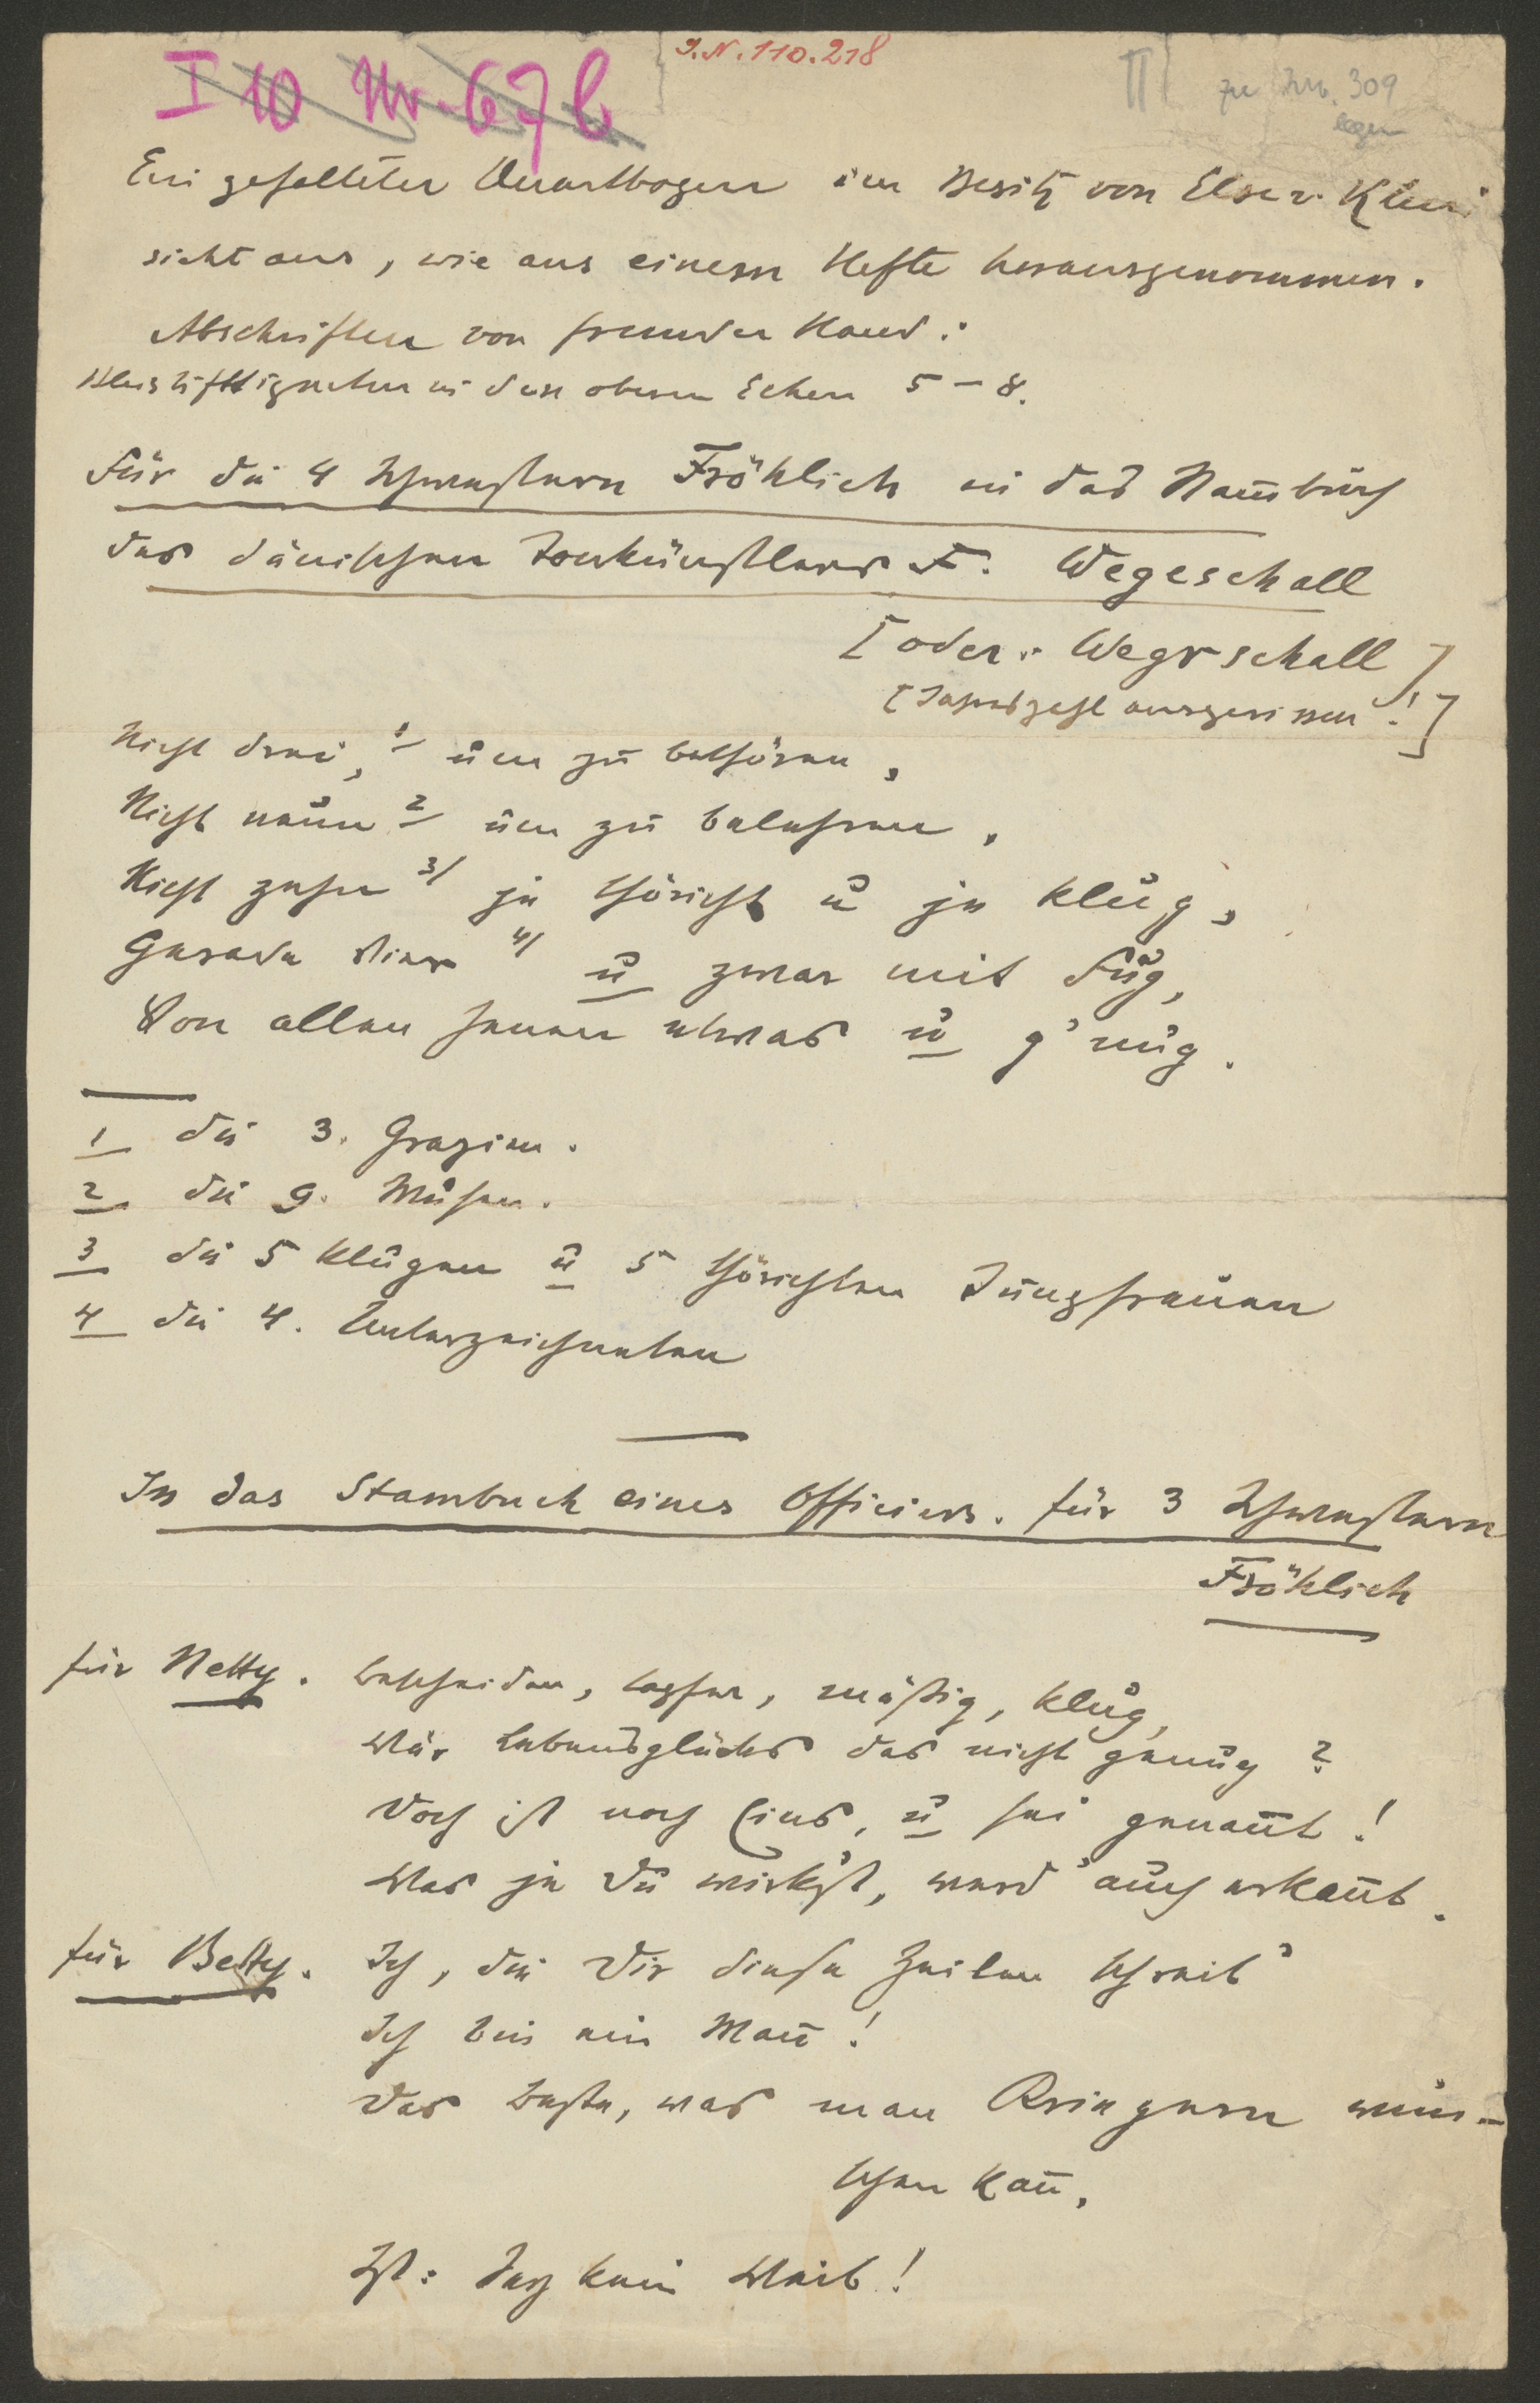 I.N. 110.218
I 10 Nr. 67 b
II zu Nr. 309
legen
Ein gefalteter Quartbogen im Besitz von Else v. Klein
sieht aus, wie aus einem Hefte herausgenommen.
Abschriften von fremder Hand:
in den oberen Ecken 5 – 8.
Für die 4 Schwestern Fröhlich in das Nam̅buch
des dänischen Tonkünstlers F. Wegeschall
[oder: Wegrschall]
[Jahrzahl ausgerissen!]
Nicht drei, 1/ um zu bethören,
Nicht neun 2/ um zu belehren,
Nicht zehn 3/ je thöricht u je klug,
Gerade Vier 4/ u zwar mit Fug,
Von allen jenen etwas u g'nug.
1 die 3. Grazien.
2 die 9. Musen.
3 die 5 klugen u 5 thörichten Jungfrauen
4 die 4. Unterzeichneten
In das Stambuch eines Officiers. für 3 Schwestern
Fröhlich
für Netty. Bescheiden, tapfer, mäßig, klug,
Wär Lebensglückes das nicht genug?
Doch ist noch Eins, u sei genan̅t!
Was je Du wirkst, werd' auch erkan̅t.
für Betty. Ich, die Dir diese Zeilen schreib'
Ich bin ein Man̅!
Das Beste, was man Kriegern wün-
schen kan̅,
Ist: Sey kein Weib!